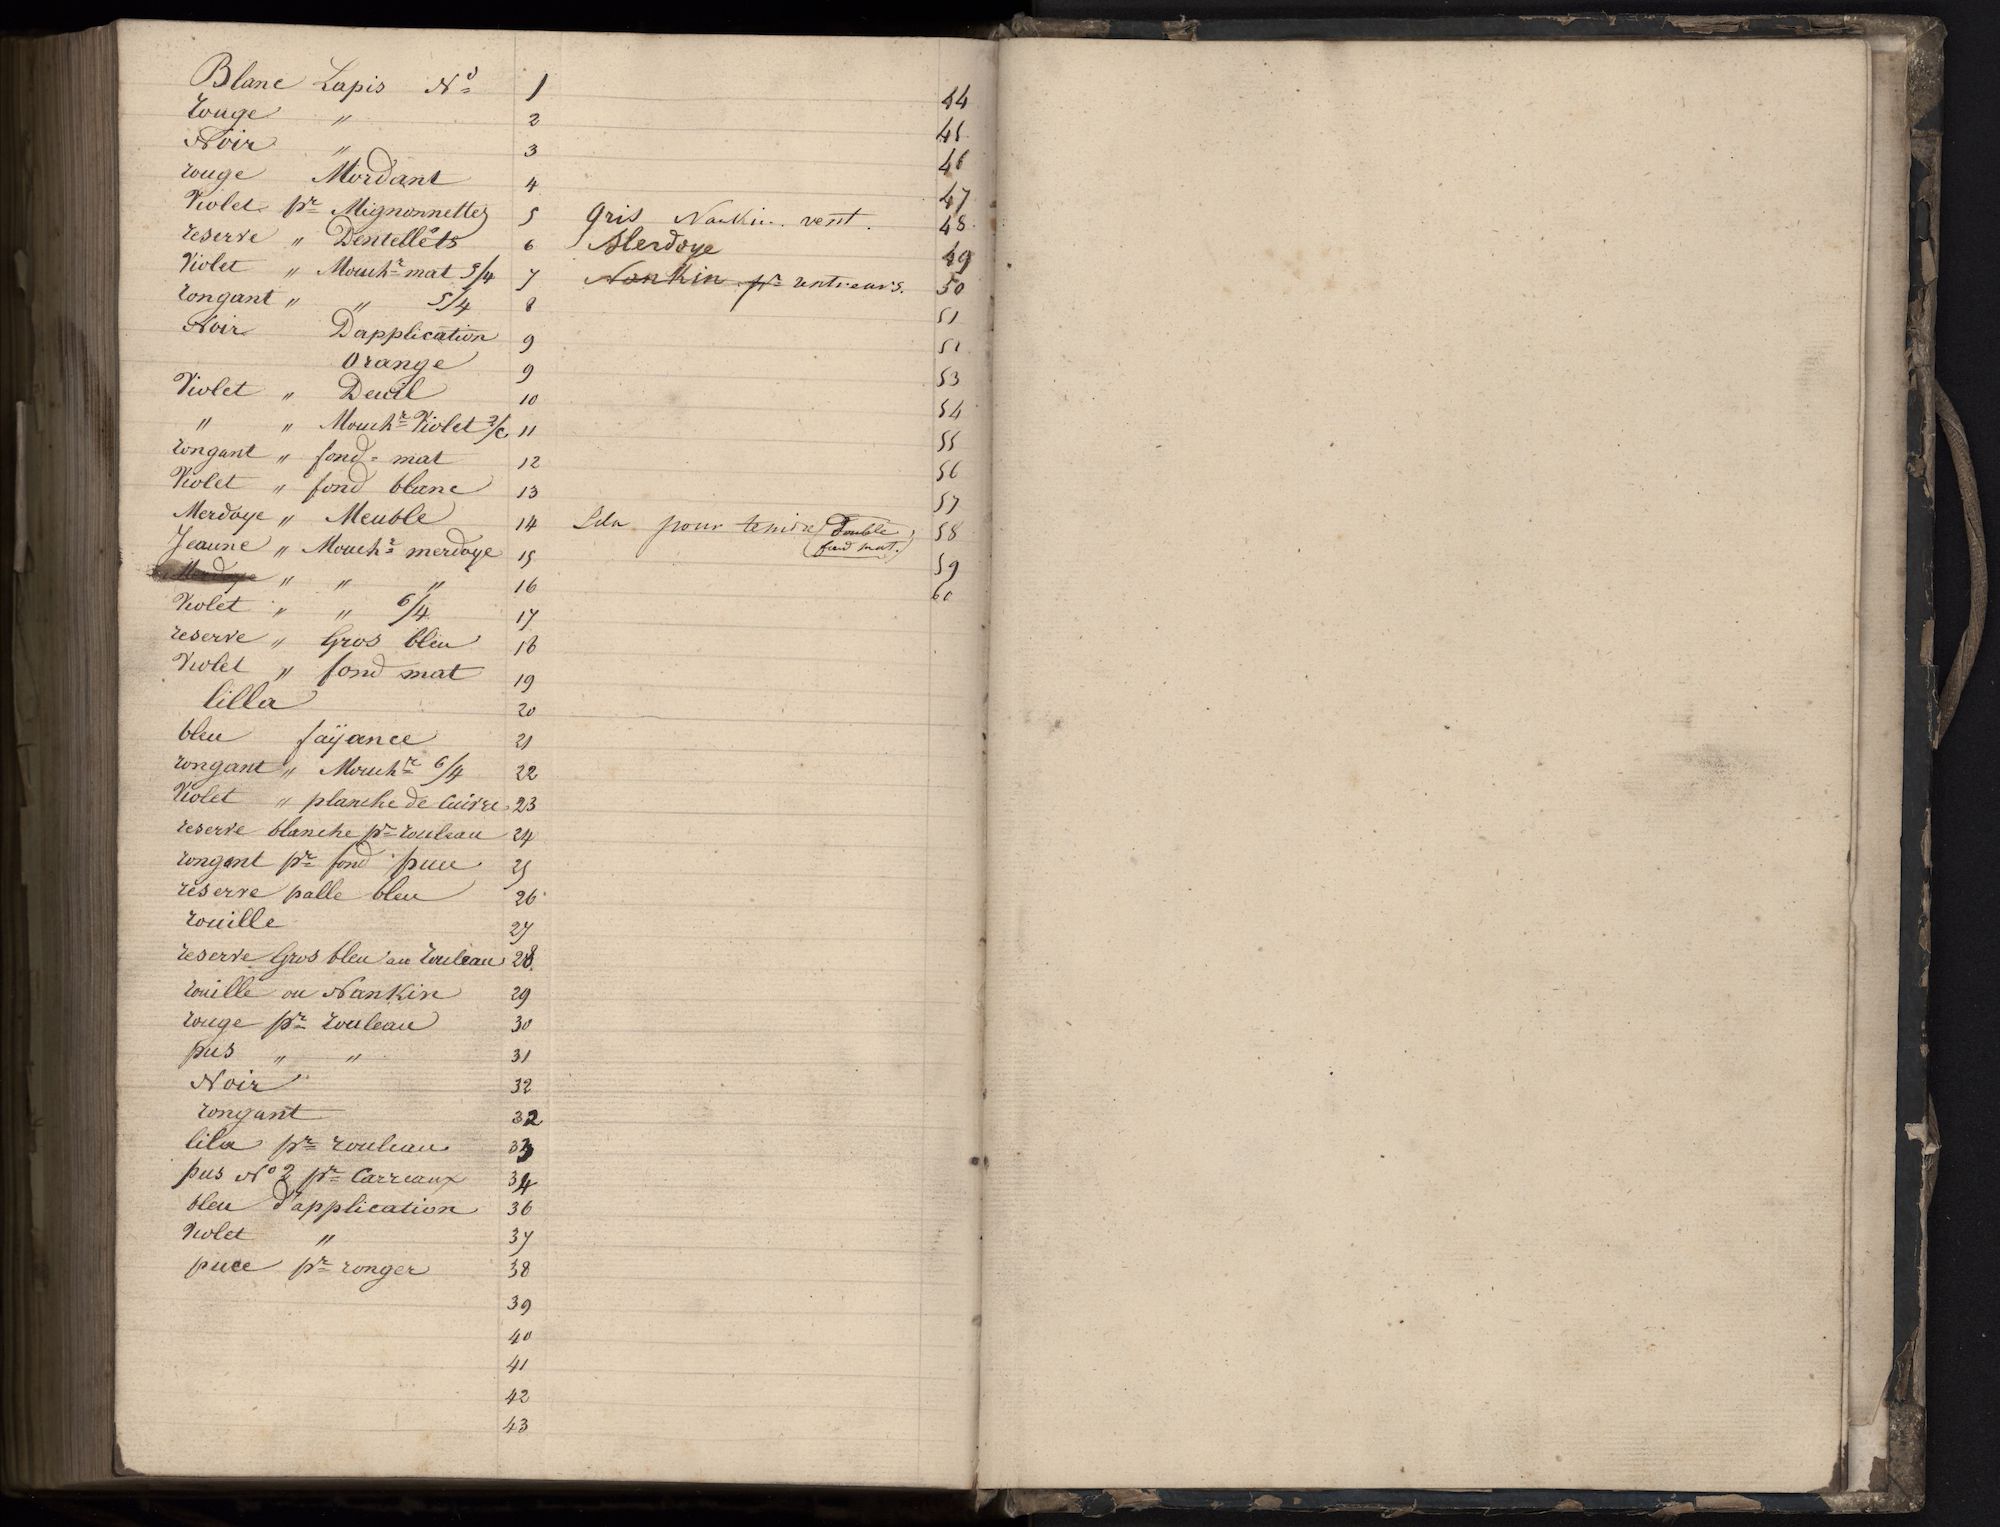 Blanc Lapis Nº 1
rouge " 2
Noir " 3
rouge Mordant 4
Violet pr Mignonnettes 5
reserve " Dentellets 6
Violet " Mouchr mat 5/4 7
rongant " " 5/4 8
Noir Dapplication 9
Orange 9
Violet " Deuil 10
" " Mouchr Violet 2/c 11
rongant " fond-mat 12
Violet " fond blanc 13
Merdoye " Meuble 14
Jeaune " Mouchr merdoye 15
Merdoye " " " 16
Violet " " 6/4 17
reserve " Gros bleu 18
Violet " fond mat 19
lilla 20
bleu faÿance 21
rongant " Mouchr 6/4 22
Violet " planche de Cuivre 23
reserve blanche pr rouleau 24
rongant pr fond puce 25
reserve palle bleu 26
rouille 27
reserve Gros bleu au rouleau 28
rouille ou Nankin 29
rouge pr rouleau 30
pus " " 31
Noir 32
rongant 32
lila pr rouleau 33
pus Nº 2 pr Carreaux 34
bleu d'application 36
Violet " 37
puce pr ronger 38
39
40
41
42
43
44
45
46
47
Gris Nankin vent. 48
Merdoye 49
Nankin pr rentreurs. 50
51
52
53
54
55
56
57
Lila pour teindre (Double fond mat.) 58
59
60